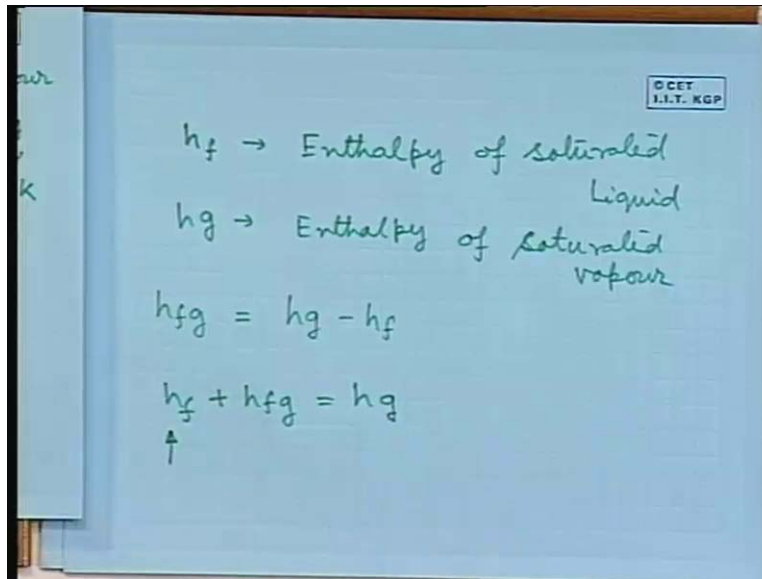 our
K
© CET
I.I.T. KGP
hf → Enthalpy of saturated
Liquid
hg → Enthalpy of saturated
vapour
hfg = hg - hf
hf + hfg = hg
↑